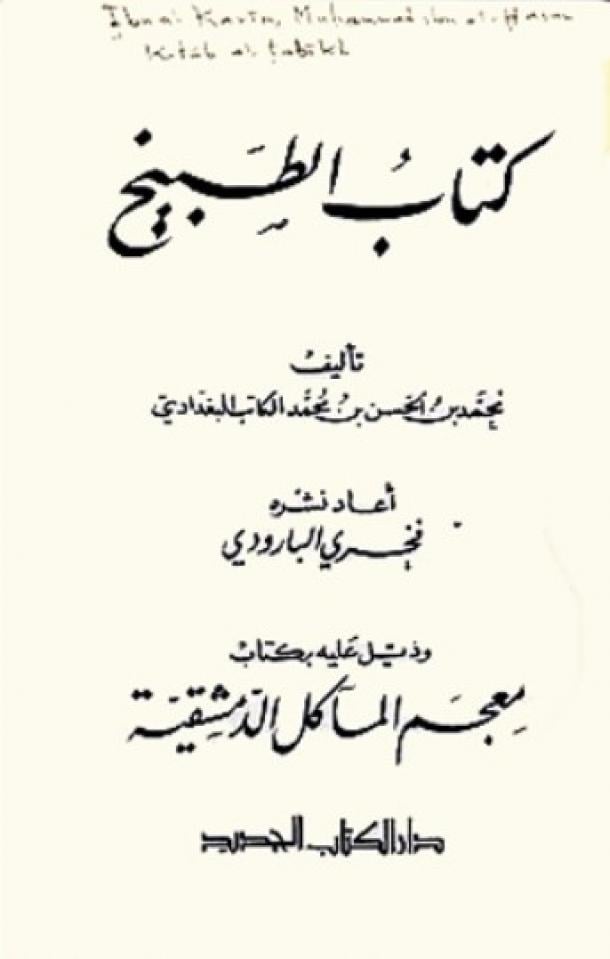 Ibn al-Karīm, Muḥammad ibn al-Ḥasan
Kitāb al-ṭabīkh
كتابُ الطَّبِيخ
تأليفُ
محمَّد بنُ الحَسن بنُ محُمَّد الكاتب البغدَاديّ
أعَاد نشْره
فخري البارودي
وذيّل عَليه بكتابْ
معجم المآكل الدّمشقيّة
دار الكتاب الجديد